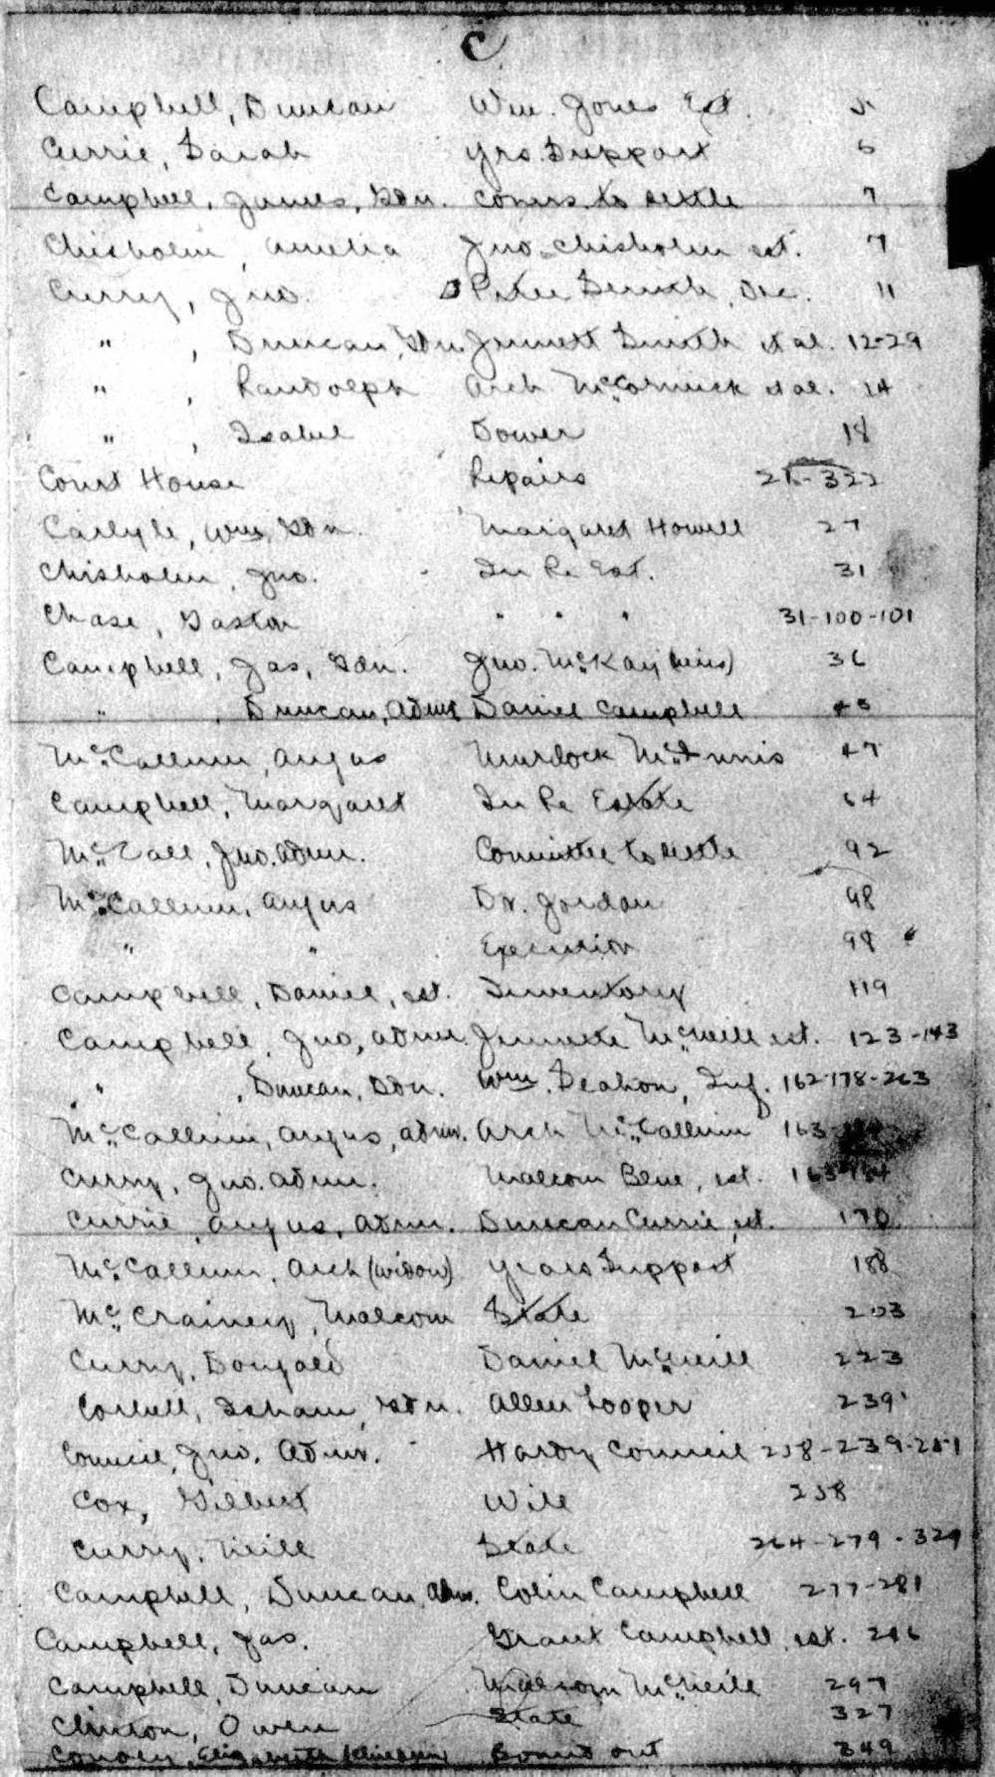 C
Campbell, Duncan Wm. Jones Est. 5
Currie, Sarah yrs. Support 6
Campbell, James, Gdn. Comrs. to settle 7
Chisholm, Amelia Jno. Chisholm est. 7
Curry, Jno. Peter Smith, Dec. 11
" , Duncan, Gdn. Jennett Smith et al. 12-29
" , Randolph Arch McCormick et al. 14
" , Isabel Dower 18
Court House Repairs 21-322
Carlyle, Wm, Gdn. Margaret Howell 27
Chisholm, Jno. In Re Est. 31
Chase, Gaston " " " 31-100-101
Campbell, Jas, Gdn. Jno. McKay (heirs) 36
" , Duncan, Admr Daniel Campbell 45
McCallum, Angus Murdock McInnis 47
Campbell, Margaret In Re Estate 64
McCall, Jno. Admr. Committee to settle 92
McCallum, Angus Dr. Jordan 98
" " Execution 98
Campbell, Daniel, est. Inventory 119
Campbell, Jno, Admr. Jennette McNeill est. 123-143
" , Duncan, Gdn. Wm. Seahon, Inf. 162-178-263
McCallum, Angus, Admr. Arch McCallum 163
Curry, Jno. Admr. Malcom Blue, est. 163-164
Currie, Angus, Admr. Duncan Currie, est. 170
McCallum, Arch (widow) years Support 188
McCrainey, Malcom State 203
Curry, Dougald Daniel McNeill 223
Corbell, Isham, Gdn. Allen Looper 239
Council, Jno. Admr. Hardy Council 238-239-251
Cox, Gilbert Will 258
Curry, Neill State 264-279-329
Campbell, Duncan, Adm. Colin Campbell 277-281
Campbell, Jas. Grant Campbell, est. 286
Campbell, Duncan Malcom McNeill 297
Clinton, Owen State 327
Elizabeth Bound out 349